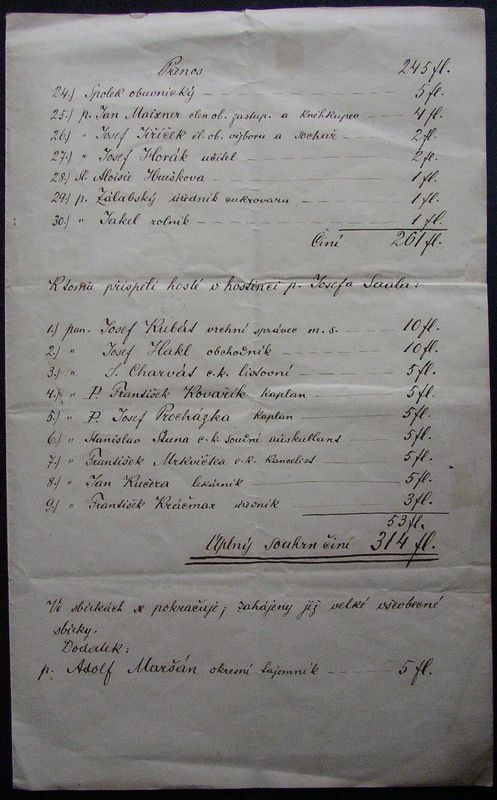 Přenos 245 fl.
24.) Spolek obuvnický — 5 fl.
25.) p. Jan Maixner člen ob. zastup. a knihkupec — 4 fl.
26.) " Josef Jiříček čl. ob. výboru a sochař — 2 fl.
27.) " Josef Horák učitel — 2 fl.
28.) Sl. Aloisie Hruškova — 1 fl.
29.) p. Zálabský úředník cukrovaru — 1 fl.
30.) " Jakel rolník — 1 fl.
Činí 261 fl.
K tomu přispěli hosté v hostinci p. Josefa Saula:
1.) pan. Josef Kubát vrchní správce m. s. — 10 fl.
2.) " Josef Hakl obchodník — 10 fl.
3.) " F. Charvás c. k. listovní — 5 fl.
4.) " P. František Kovařík kaplan — 5 fl.
5.) " P. Josef Procházka kaplan — 5 fl.
6.) " Stanislav Stuna c. k. soudní auskultant — 5 fl.
7.) " František Mrkvička c. k. kancelist — 5 fl.
8.) " Jan Kučera lekárník — 5 fl.
9.) " František Kráčmar — 3 fl.
53 fl.
Úplný souhrn činí 314 fl.
Ve sbírkách se pokračuje; zahájeny již velké všeobecné
sbírky.
Dodatek:
p. Adolf Maršán okresní tajemník — 5 fl.